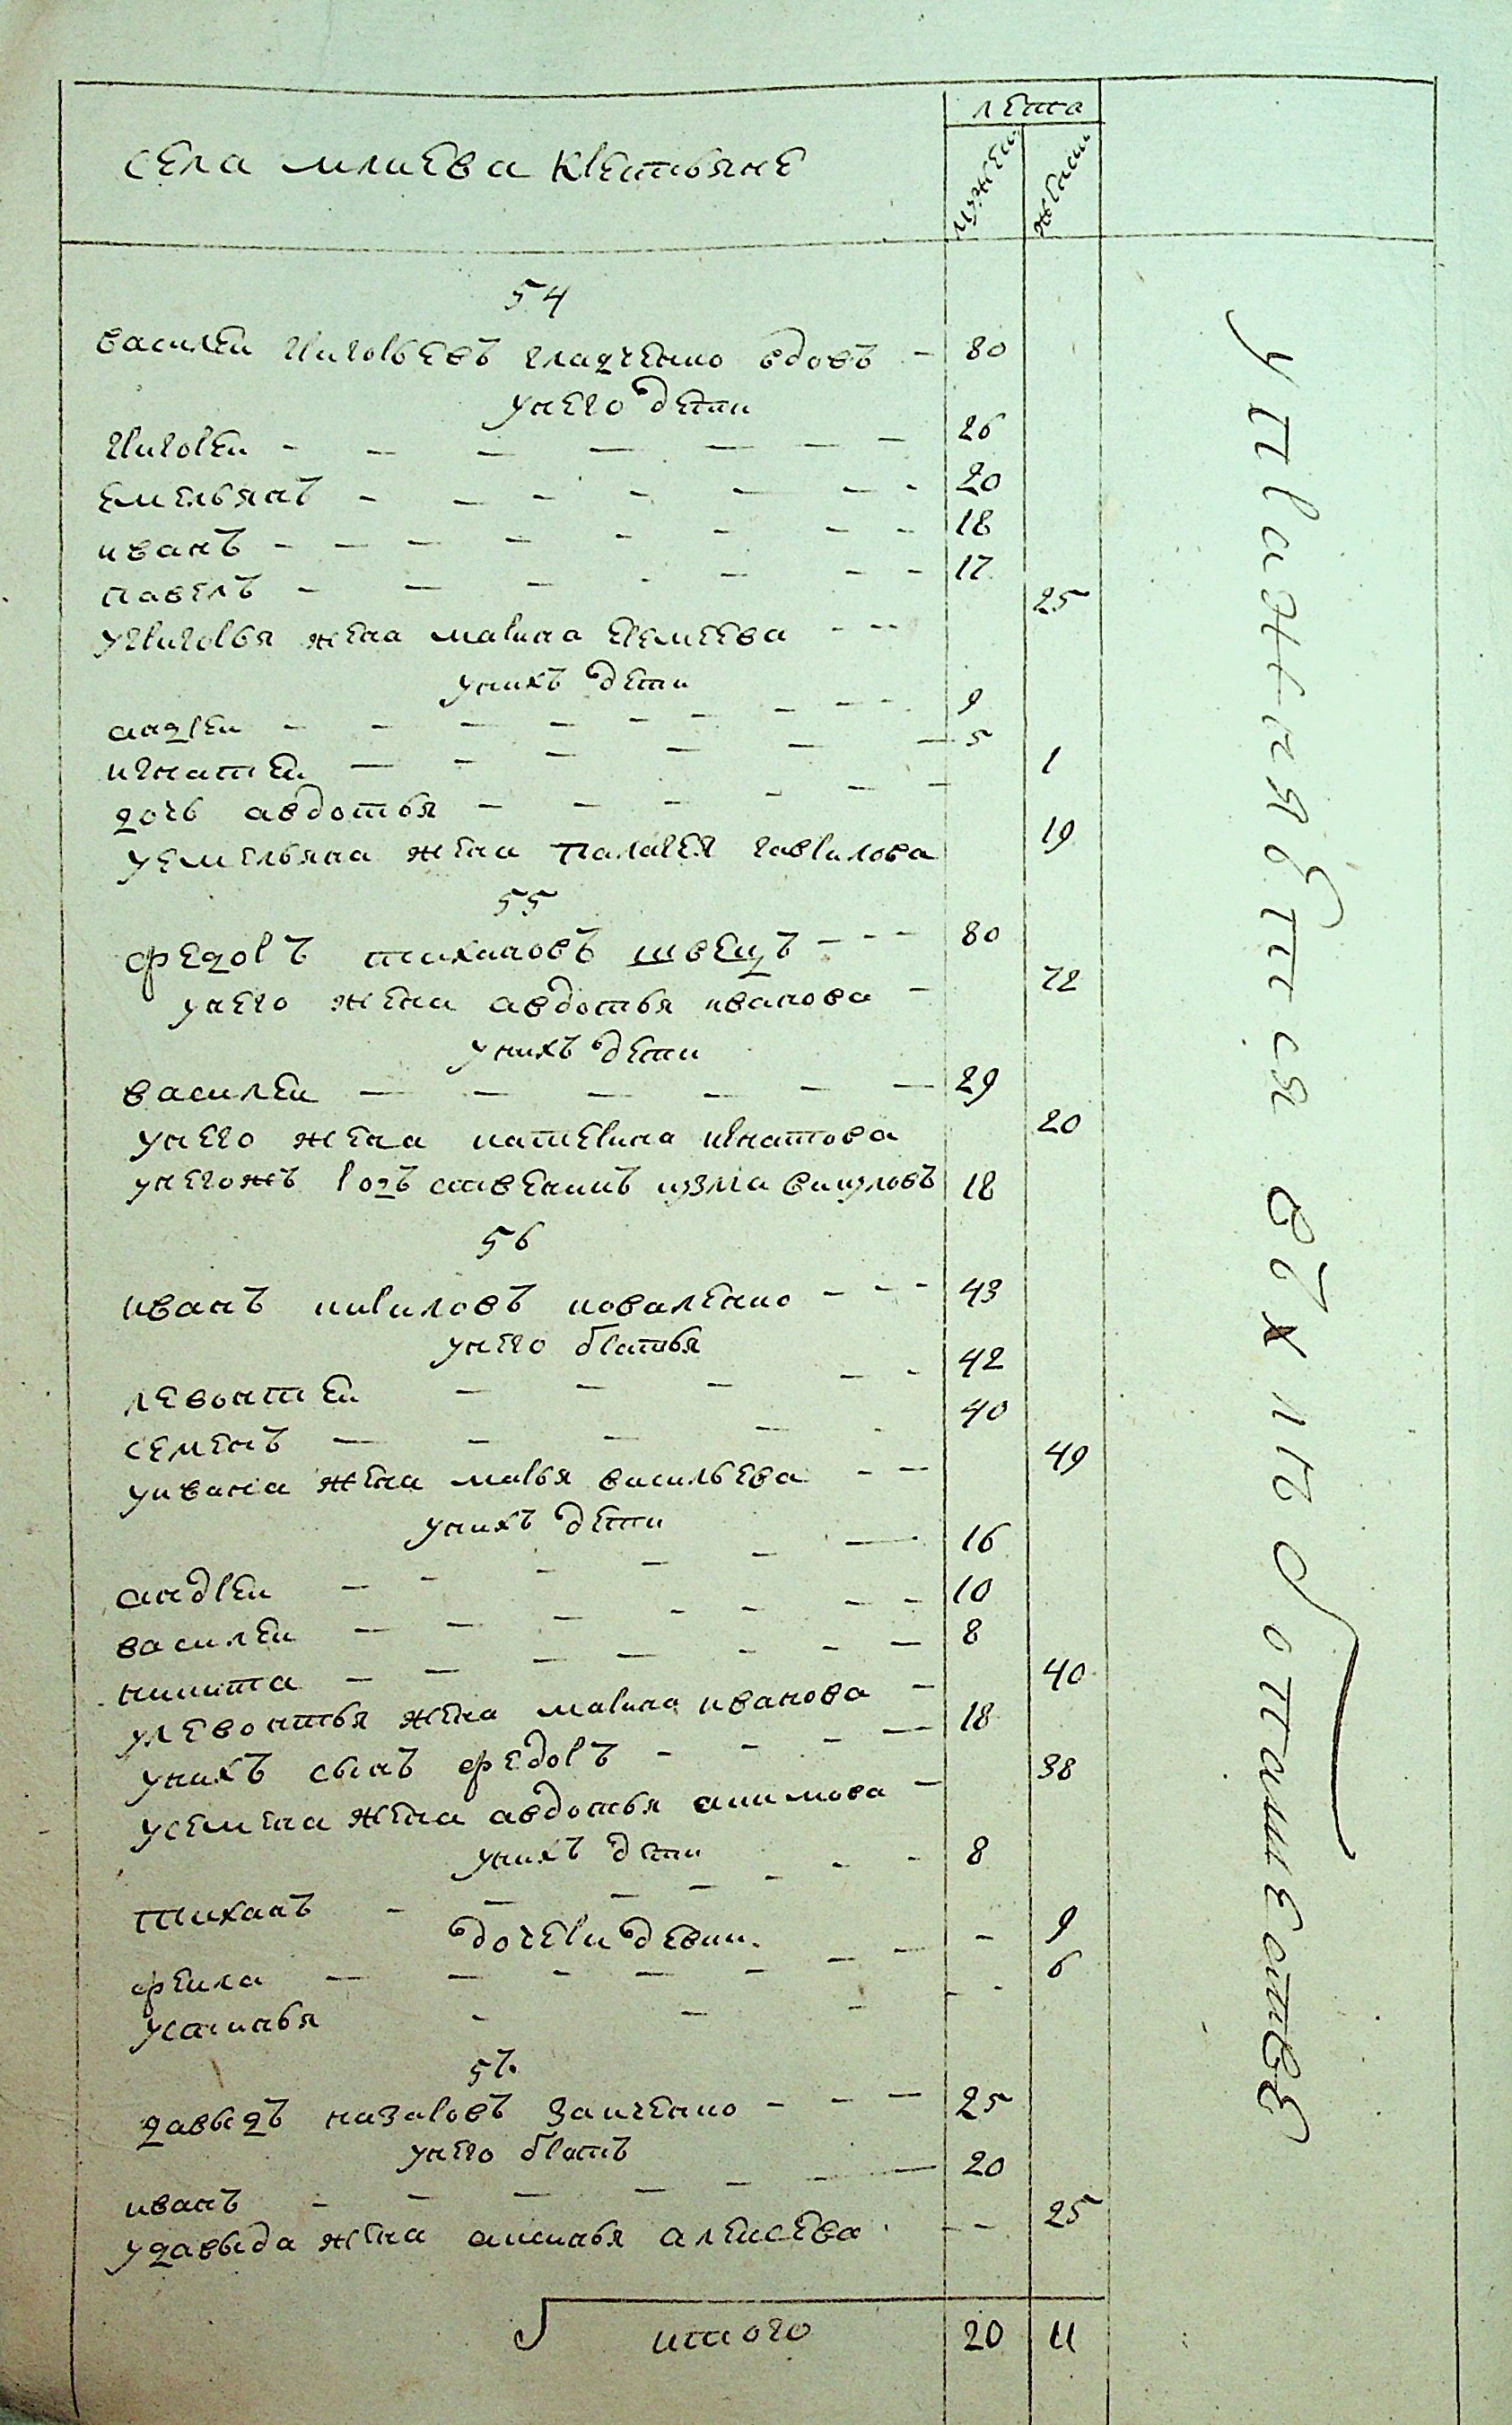 лета
села млиева крестьяне
мужеск
женск
54
василеи григорьевъ гладченко вдовъ 80
унего дети
григореи 26
емельянъ 20
иванъ 18
павелъ 17
угригорья жена марина еремеева 25
унихъ дети
андреи 9
игнатеи 5
дочь авдотья 1
уемельяна жена палагея гаврилова 19
55
федоръ тихановъ швецъ 80
унего жена авдотья иванова 72
унихъ дети
василеи 29
унего жена катерина игнатова 20
унегожъ родъственикъ кузма викуловъ 18
56
иванъ кириловъ коваленко 43
унего братья
левонтеи 42
семенъ 40
уивана жена марья васильева 49
унихъ дети
андреи 16
василеи 10
никита 8
улевонтья жена марина иванова 40
унихъ сынъ федоръ 18
усемена жена авдотья акимова 38
унихъ дети
тиханъ 8
дочери девки
фекла 9
устинья 6
57
давыдъ назаровъ заиченко 25
унего братъ
иванъ 20
удавыда жена аксинья алексеева 25
итого 20 11
упражняются въ хлебопашестве